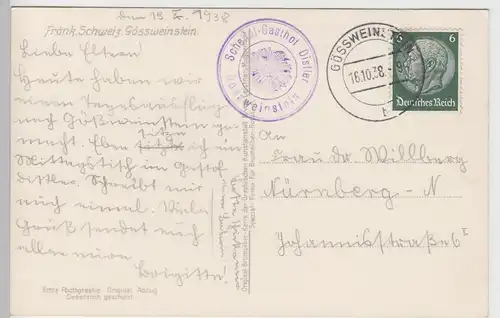 den 15. X. 1938
Fränk. Schweiz. Gössweinstein
Liebe Eltern!
Heute haben wir
einen Tagesausflug
nach Gößweinstein ge-
macht. Eben sitzen ich im
Mittagstisch im Gasthof
Distler. Schreibt mir
auch einmal. Viele
Grüße sendet euch
allen eure
Brigitte
Echte Photographie Original Abzug
Gesetzlich geschützt
Scheffel-Gasthof Distler
Gössweinstein
GÖSSWEINSTEIN
16.10.38
6 6
Deutsches Reich
An
Frau Dr. Willberg
Nürnberg-N
Johannisstraße 6 I